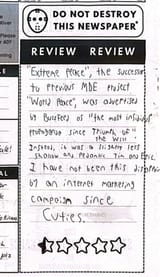 DO NOT DESTROY
THIS NEWSPAPER
REVIEW REVIEW
"Extreme Peace", the successor
to previous MDE project
"World Peace", was advertised
by Buzzfeed as "the most
propaganda since Triumph of
the Will".
Instead, it was a slightly less
shallow and pedantic Tim and Eric.
I have not been this
by an internet marketing
campaign since
Cuties.